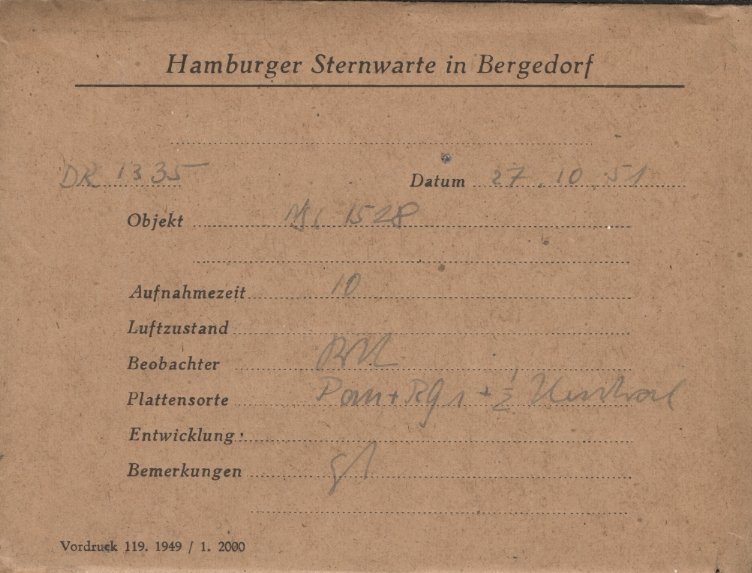 Hamburger Sternwarte in Bergedorf
DR 1335 Datum 27.10.51
Objekt 1528
Aufnahmezeit 10
Luftzustand
Beobachter
Plattensorte Pan + RG 1 + ½ Neutral
Entwicklung
Bemerkungen
Vordruck 119. 1949 / 1. 2000